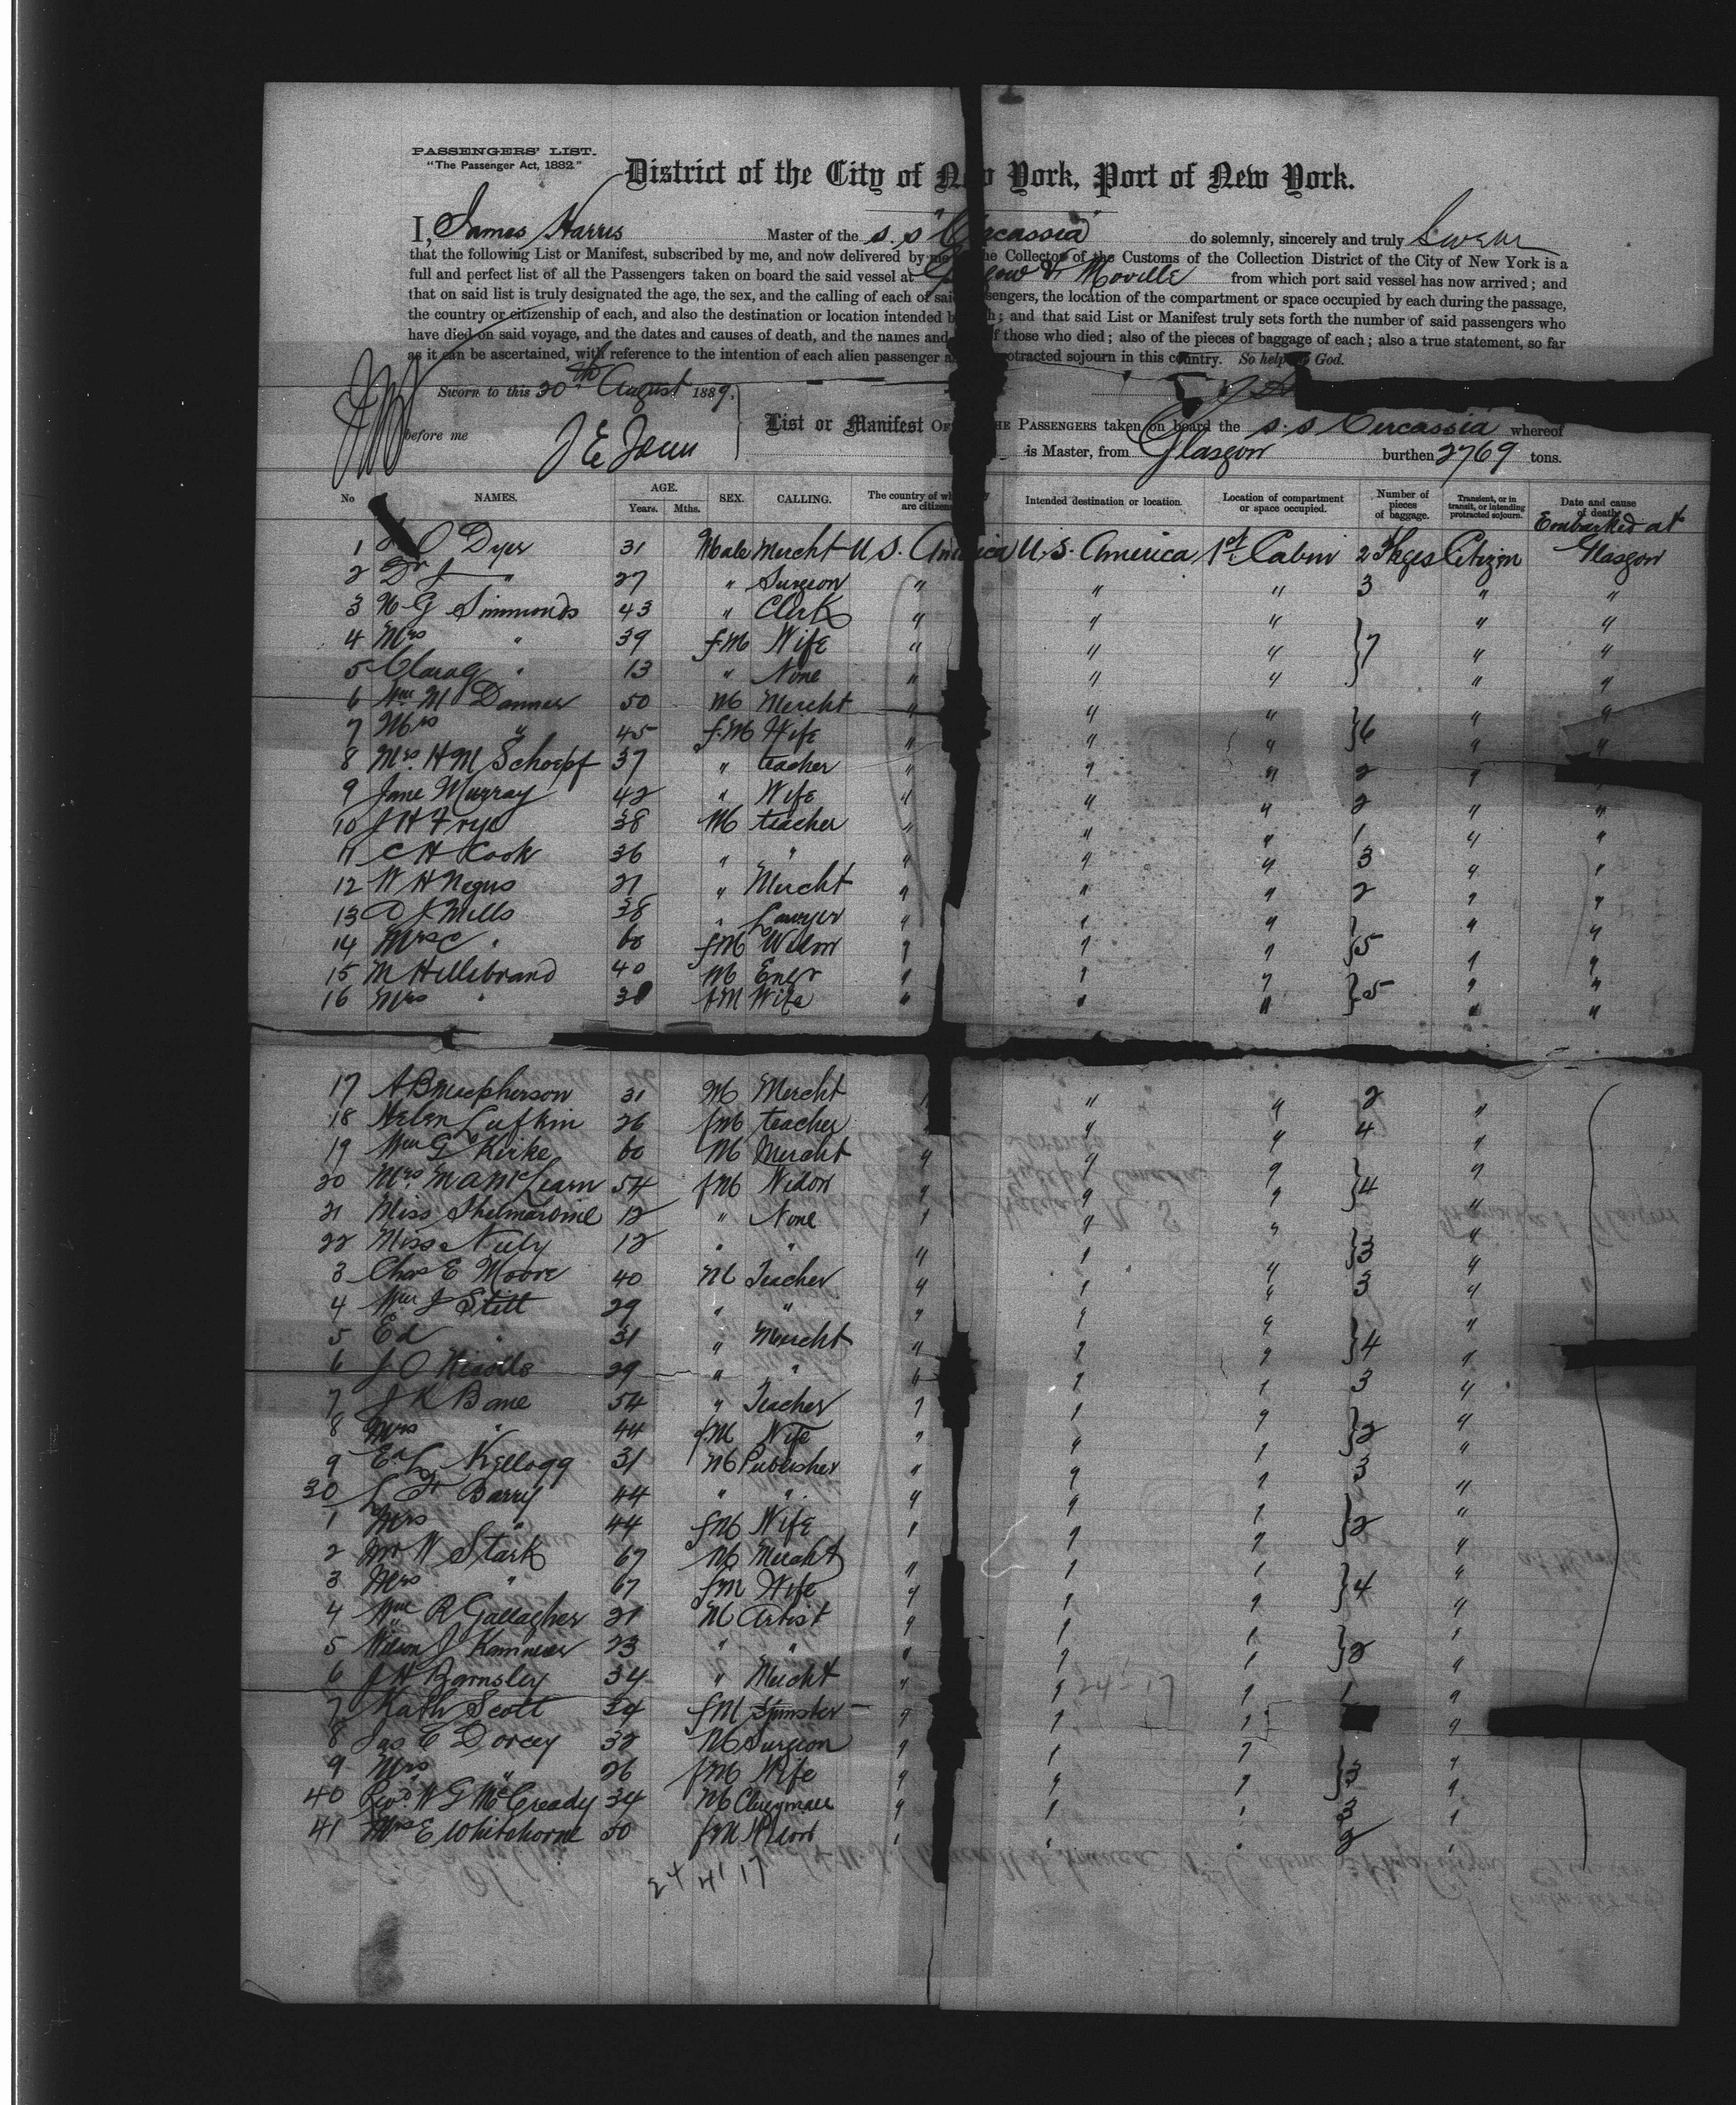 PASSENGERS' LIST.
"The Passenger Act, 1882."
District of the City of New York, Port of New York.
I, James Harris Master of the s.s "Circassia" do solemnly, sincerely and truly Swear
that the following List or Manifest, subscribed by me, and now delivered by me the Collector of the Customs of the Collection District of the City of New York is a
full and perfect list of all the Passengers taken on board the said vessel at Glasgow & Moville from which port said vessel has now arrived; and
that on said list is truly designated the age, the sex, and the calling of each of said passengers, the location of the compartment or space occupied by each during the passage,
the country or citizenship of each, and also the destination or location intended by each; and that said List or Manifest truly sets forth the number of said passengers who
have died on said voyage, and the dates and causes of death, and the names and of those who died; also of the pieces of baggage of each; also a true statement, so far
as it can be ascertained, with reference to the intention of each alien passenger a protracted sojourn in this country. So help God.
Sworn to this 20th August 1889.
before me
List or Manifest OF THE PASSENGERS taken on board the s.s Circassia whereof
is Master, from Glasgow burthen 2769 tons.
No NAMES. AGE. Years. Mths. SEX. CALLING. The country of are citizens Intended destination or location. Location of compartment or space occupied. Number of pieces of baggage. Transient, or in transit, or intending protracted sojourn. Date and cause of death.
Embarked at
1 O Dyer 31 Male Mercht U.S. America U.S. America 1st Cabin 2 Pkges Citizen Glasgow
2 Dr J " 27 " Surgeon " " " 3 " "
3 H G Simmonds 43 " Clerk " " " " "
4 Mrs " 39 fM Wife " " " 7 " "
5 Clara G " 13 " None " " " " "
6 Wm M Danner 50 M Mercht " " " " "
7 Mrs " 45 fM Wife " " " 6 " "
8 Mrs. H M Schoepf 37 " teacher " " " 2 "
9 Jane Murray 42 " Wife " " " 2 " "
10 J H Frye 38 M teacher " " " 1 " "
11 C H Cook 36 " " " " " 3 " "
12 W H Negus 27 " Mercht " " " 2 " "
13 A J Mills 38 " Lawyer " " " " "
14 Mrs C " 60 fM Widow " " " 5 " "
15 M Hillebrand 40 M Engr " " " " "
16 Mrs " 30 fM Wife " " " 5 " "
17 A B Macpherson 31 M Mercht " " " 2 "
18 Helen Lufkin 26 fM teacher " " " 4 "
19 Wm G Kirke 60 M Mercht " " " "
20 Mrs. M A McLearn 54 fM Widow " " " 4 "
21 Miss Shelmardine 12 " None " " " "
22 Miss 12 " " " " " 3 "
3 Chas E Moore 40 M Teacher " " " 3 "
4 Wm J Stitt 29 " " " " " "
5 Ed " 31 " Mercht " " " 4 "
6 J O 29 " " " " " 3 "
7 J K Bane 54 " Teacher " " " "
8 Mrs " 44 fM Wife " " " 2 "
9 E L Kellogg 31 M Publisher " " " 3 "
30 L H Barry 44 " " " " " "
1 Mrs " 44 fM Wife " " " 2 "
2 Mr N Stark 67 M Mercht " " " "
3 Mrs " 67 fM Wife " " " 4 "
4 Wm R Gallagher 21 M Artist " " " "
5 Wilson J 23 " " " " " 2 "
6 J H Barnsley 34 " Mercht " " " 1 "
7 Kath Scott 34 fM Spinster " " " "
8 Jas C Dorcey 32 M Surgeon " " " "
9 Mrs " 26 fM Wife " " " 3 "
40 Revd. W G McCready 34 M Clergyman " " " 3 "
41 Mrs E Whitehorne 50 fM Widow " " " 2 "
24 41 17